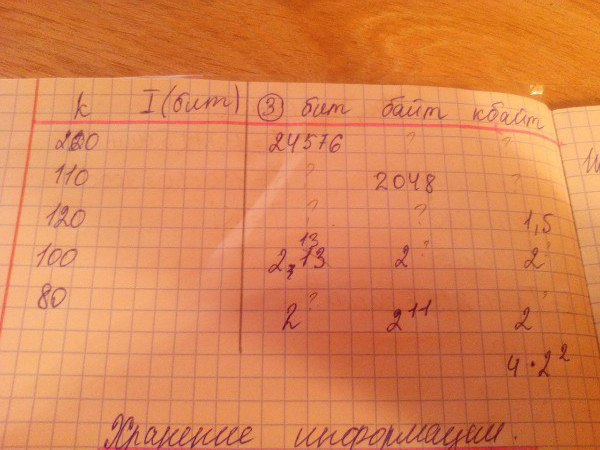 k I (бит) ③ бит байт кбайт
220 24576 ? ?
110 ? 2048 ?
120 ? ? 1,5
100 2¹³ 2? 2?
80 2? 2¹¹ 2?
4 • 2²
Хранение информации.